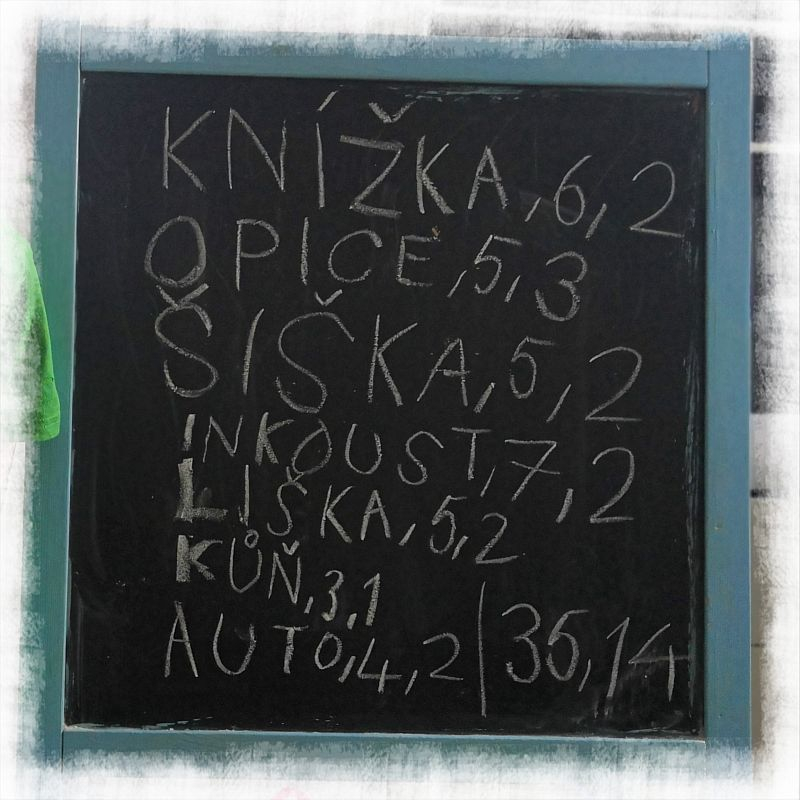 KNÍŽKA,6,2
OPICE,5,3
ŠIŠKA,5,2
INKOUST,7,2
LIŠKA,5,2
KŮŇ,3,1
AUTO,4,2|35,14